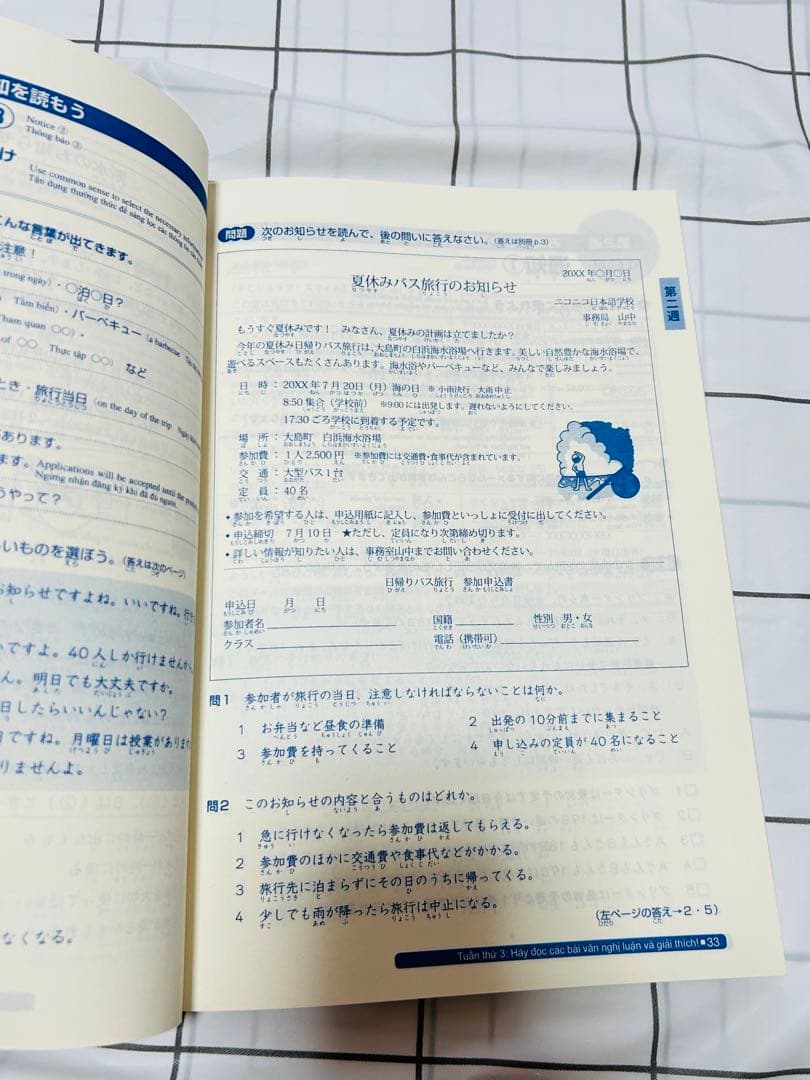 知を読もう
Notice ③
Thông báo ③
Use common sense to select the necessary
Tận dụng thường thức để sàng lọc các thông tin
こんな言葉が出てきます。
注意!
trong ngày)・○泊○日?
Tắm biển)・バーベキュー(a barbecue
Tham quan ○○)・
of ○○ Thực tập ○○) など
とき・旅行当日(on the day of the trip
があります。
ます。Applications will be accepted until the
Ngưng nhận đăng ký khi đã đủ người.
うやって?
いいものを選ぼう。(答えは次のページ)
お知らせですよね。いいですね。
いですよ。40人しか行けません
ん。明日でも大丈夫ですか。
日したらいいんじゃない?
日ですね。月曜日は授業があります
りませんよ。
なくなる。
問題 次のお知らせを読んで、後の問いに答えなさい。(答えは別冊p.3)
20XX年○月○日
夏休みバス旅行のお知らせ
ニコニコ日本語学校
事務局 山中
もうすぐ夏休みです! みなさん、夏休みの計画は立てましたか?
今年の夏休み日帰りバス旅行は、大島町の白浜海水浴場へ行きます。美しい自然豊かな海水浴場で、
遊べるスペースもたくさんあります。海水浴やバーベキューなど、みんなで楽しみましょう。
日 時:20XX年7月20日(月)海の日 ※小雨決行 大雨中止
8:50集合(学校前) ※9:00には出発します。遅れないようにしてください。
17:30ごろ学校に到着する予定です。
場 所:大島町 白浜海水浴場
参加費:1人2,500円 ※参加費には交通費・食事代が含まれています。
交 通:大型バス1台
定 員:40名
・参加を希望する人は、申込用紙に記入し、参加費といっしょに受付に出してください。
・申込締切 7月10日 ★ただし、定員になり次第締め切ります。
・詳しい情報が知りたい人は、事務室山中までお問い合わせください。
日帰りバス旅行 参加申込書
申込日 月 日
参加者名 国籍 性別 男・女
クラス 電話(携帯可)
第二週
問1 参加者が旅行の当日、注意しなければならないことは何か。
1 お弁当など昼食の準備 2 出発の10分前までに集まること
3 参加費を持ってくること 4 申し込みの定員が40名になること
問2 このお知らせの内容と合うものはどれか。
1 急に行けなくなったら参加費は返してもらえる。
2 参加費のほかに交通費や食事代などがかかる。
3 旅行先に泊まらずにその日のうちに帰ってくる。
4 少しでも雨が降ったら旅行は中止になる。
(左ページの答え→2・5)
Tuần thứ 3. Hãy đọc các bài văn nghị luận và giải thích! ■ 33